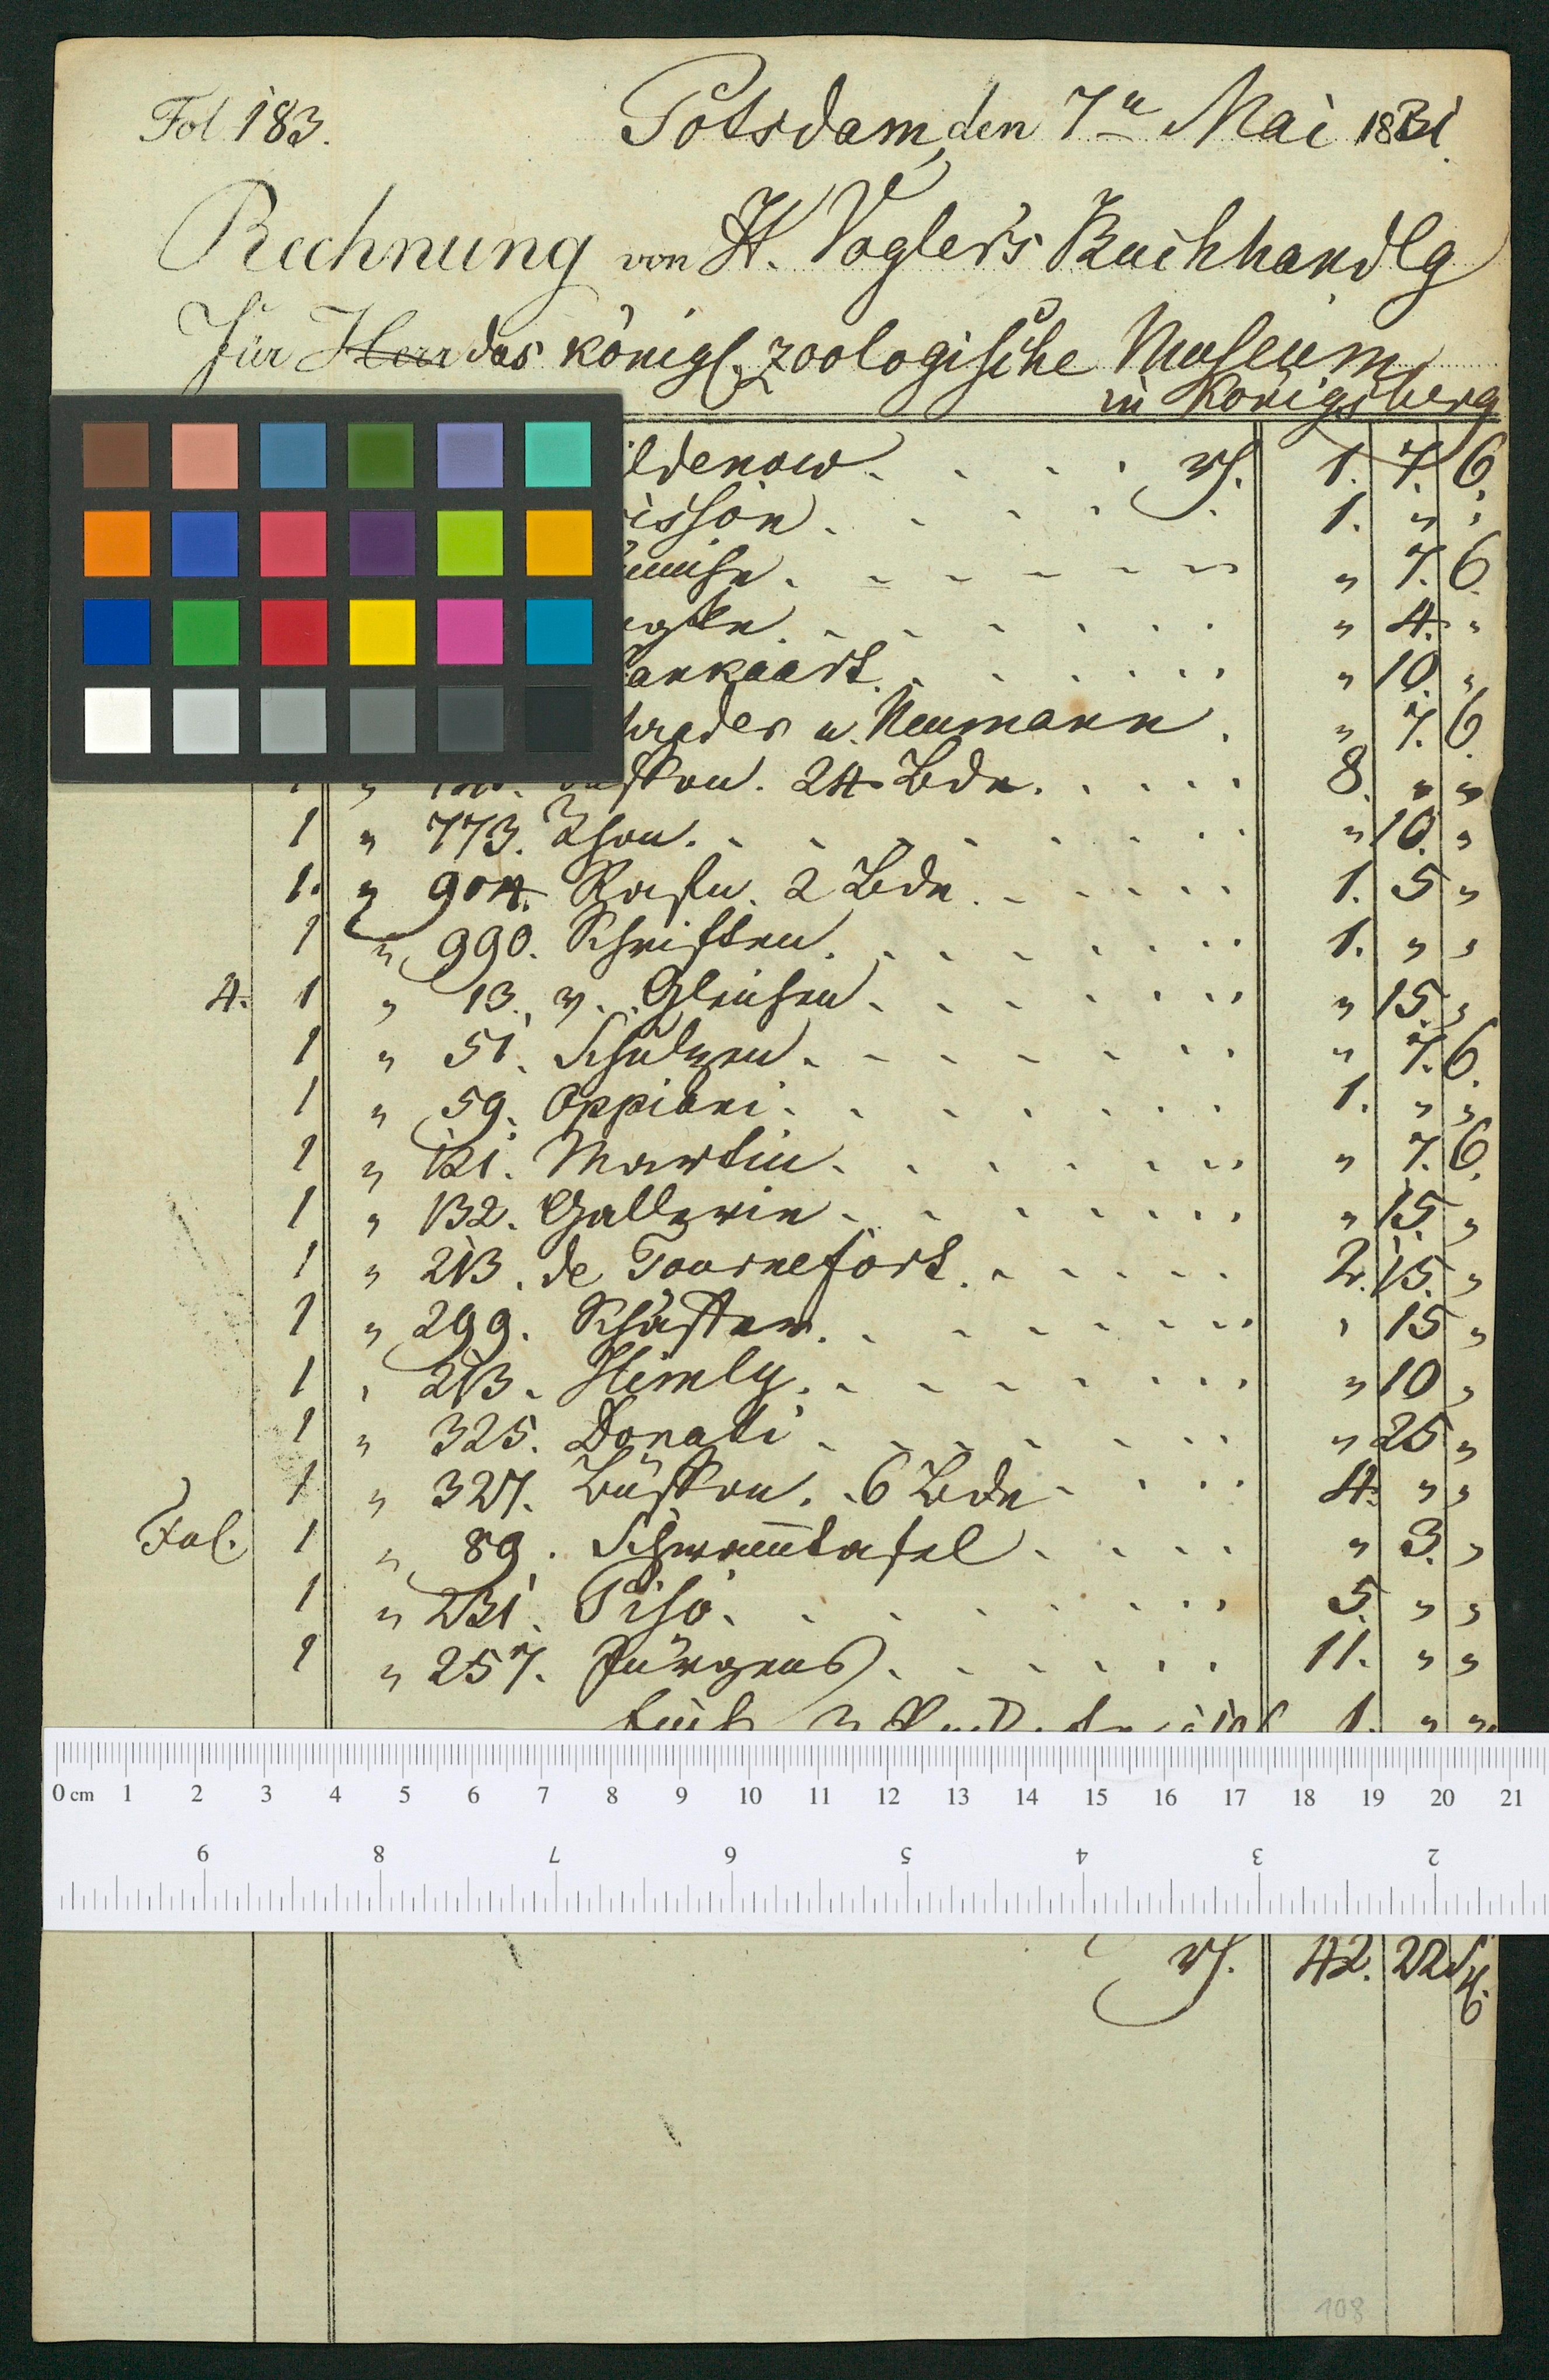 Fol 183. Potsdam, den 7n Mai 1831.
Rechnung von H. Vogler's Buchhandlg
Für Herr das königl. zoologische Museum
in Königsberg
ldenow. rf. 1. 7. 6.
isson. 1. " "
" 7. 6.
" 4. "
ankaart. " 10. "
hrader u. Neumann. " 7. 6.
24 Bde. 8. " "
1 " 773. " 10. "
1. " 904. Rafn. 2 Bde. 1. 5 "
1 " 990. Schriften. 1. " "
4. 1 " 13. v. Gleichen. " 15. "
1 " 51. Schulzen. " 7. 6.
1 " 59. Oppiani. 1. " "
1 " 121. Martin. " 7. 6.
1 " 132. Gallerie. " 15. "
1 " 213. de Tournefort. 2. 15. "
1 " 299. Schäffer. " 15 "
1 " 213. Himly. " 10 "
1 " 325. Donati " 25 "
1 " 327. Büffon. 6 Bde 4. " "
Fol. 1 " 89. Schwammtafel. " 3. "
1 " 231. Piso. 5. " "
1 " 257. Jürgens. 11. " "
1. " "
0 cm 1 2 3 4 5 6 7 8 9 10 11 12 13 14 15 16 17 18 19 20 21
9 8 7 6 5 4 3 2
rf. 42. 22. 6.
108